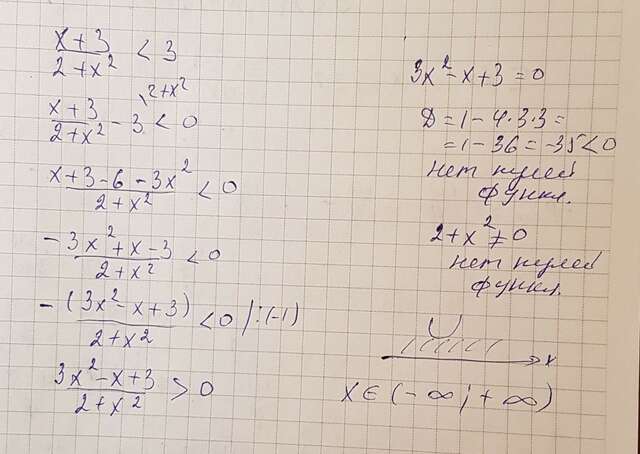 x+3 / 2+x² < 3
x+3 / 2+x² - 3 \2+x² < 0
x+3-6-3x² / 2+x² < 0
-3x²+x-3 / 2+x² < 0
-(3x²-x+3) / 2+x² < 0 |:(-1)
3x²-x+3 / 2+x² > 0
3x²-x+3=0
Д = 1-4·3·3 =
=1-36=-35<0
нет нулей
функц.
2+x²≠0
нет нулей
функц.
x
x∈(-∞;+∞)